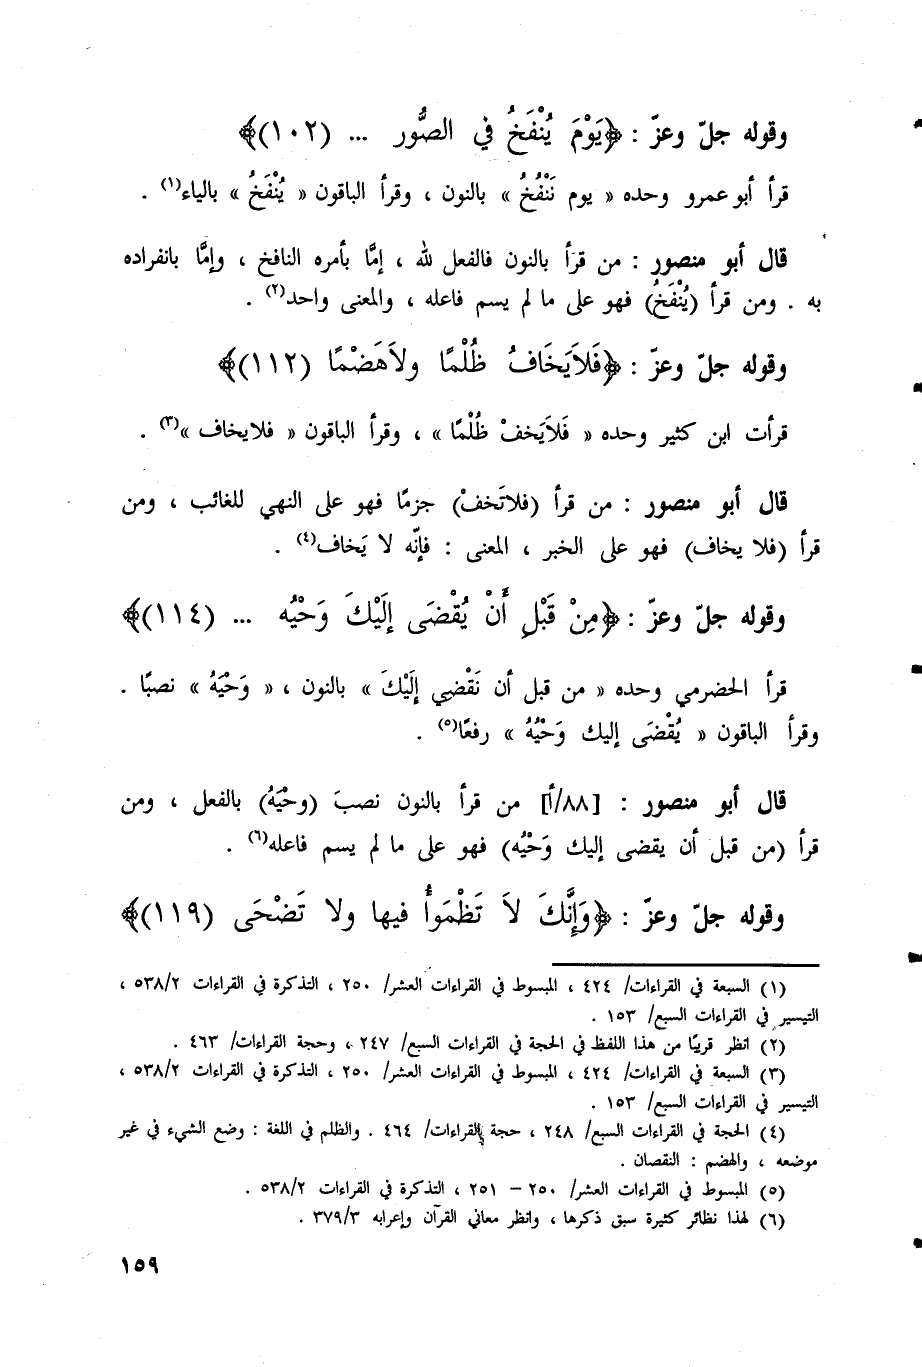 وقوله جلّ وعزّ : ﴿يَوْمَ يُنْفَخُ في الصُّور ... (١٠٢)﴾
قرأ أبو عمرو وحده « يوم نَنْفُخُ » بالنون ، وقرأ الباقون « يُنْفَخُ » بالياء(١) .
قال أبو منصور : من قرأ بالنون فالفعل لله ، إمَّا بأمره النافخ ، وإمَّا بانفراده
به . ومن قرأ (يُنْفَخُ) فهو على ما لم يسم فاعله ، والمعنى واحد(٢) .
وقوله جلّ وعزّ : ﴿فَلاَيَخَافُ ظُلْمًا ولاَهَضْمًا (١١٢)﴾
قرأت ابن كثير وحده « فَلاَيَخفْ ظُلْمًا » ، وقرأ الباقون « فلايخاف »(٣) .
قال أبو منصور : من قرأ (فلاتَخفْ) جزمًا فهو على النهي للغائب ، ومن
قرأ (فلا يخاف) فهو على الخبر ، المعنى : فإنّه لا يَخاف(٤) .
وقوله جلّ وعزّ : ﴿مِنْ قَبْلِ أَنْ يُقْضَى إلَيْكَ وَحْيُه ... (١١٤)﴾
قرأ الحضرمي وحده « من قبل أن نَقْضِي إلَيْكَ » بالنون ، « وَحْيَهُ » نصبًا .
وقرأ الباقون « يُقْضَى إليك وَحْيُهُ » رفعًا(٥) .
قال أبو منصور : [٨٨/أ] من قرأ بالنون نصبَ (وحْيَهُ) بالفعل ، ومن
قرأ (من قبل أن يقضى إليك وَحْيُه) فهو على ما لم يسم فاعله(٦) .
وقوله جلّ وعزّ : ﴿وَإنَّكَ لاَ تَظْمَوأُ فيها ولا تَضْحَى (١١٩)﴾
(١) السبعة في القراءات/ ٤٢٤ ، المبسوط في القراءات العشر/ ٢٥٠ ، التذكرة في القراءات ٥٣٨/٢ ،
التيسير في القراءات السبع/ ١٥٣ .
(٢) انظر قريبًا من هذا اللفظ في الحجة في القراءات السبع/ ٢٤٧ ، وحجة القراءات/ ٤٦٣ .
(٣) السبعة في القراءات/ ٤٢٤ ، المبسوط في القراءات العشر/ ٢٥٠ ، التذكرة في القراءات ٥٣٨/٢ ،
التيسير في القراءات السبع/ ١٥٣ .
(٤) الحجة في القراءات السبع/ ٢٤٨ ، حجة القراءات/ ٤٦٤ . والظلم في اللغة : وضع الشيء في غير
موضعه ، والهضم : النقصان .
(٥) المبسوط في القراءات العشر/ ٢٥٠ – ٢٥١ ، التذكرة في القراءات ٥٣٨/٢ .
(٦) لهذا نظائر كثيرة سبق ذكرها ، وانظر معاني القرآن وإعرابه ٣٧٩/٣ .
١٥٩